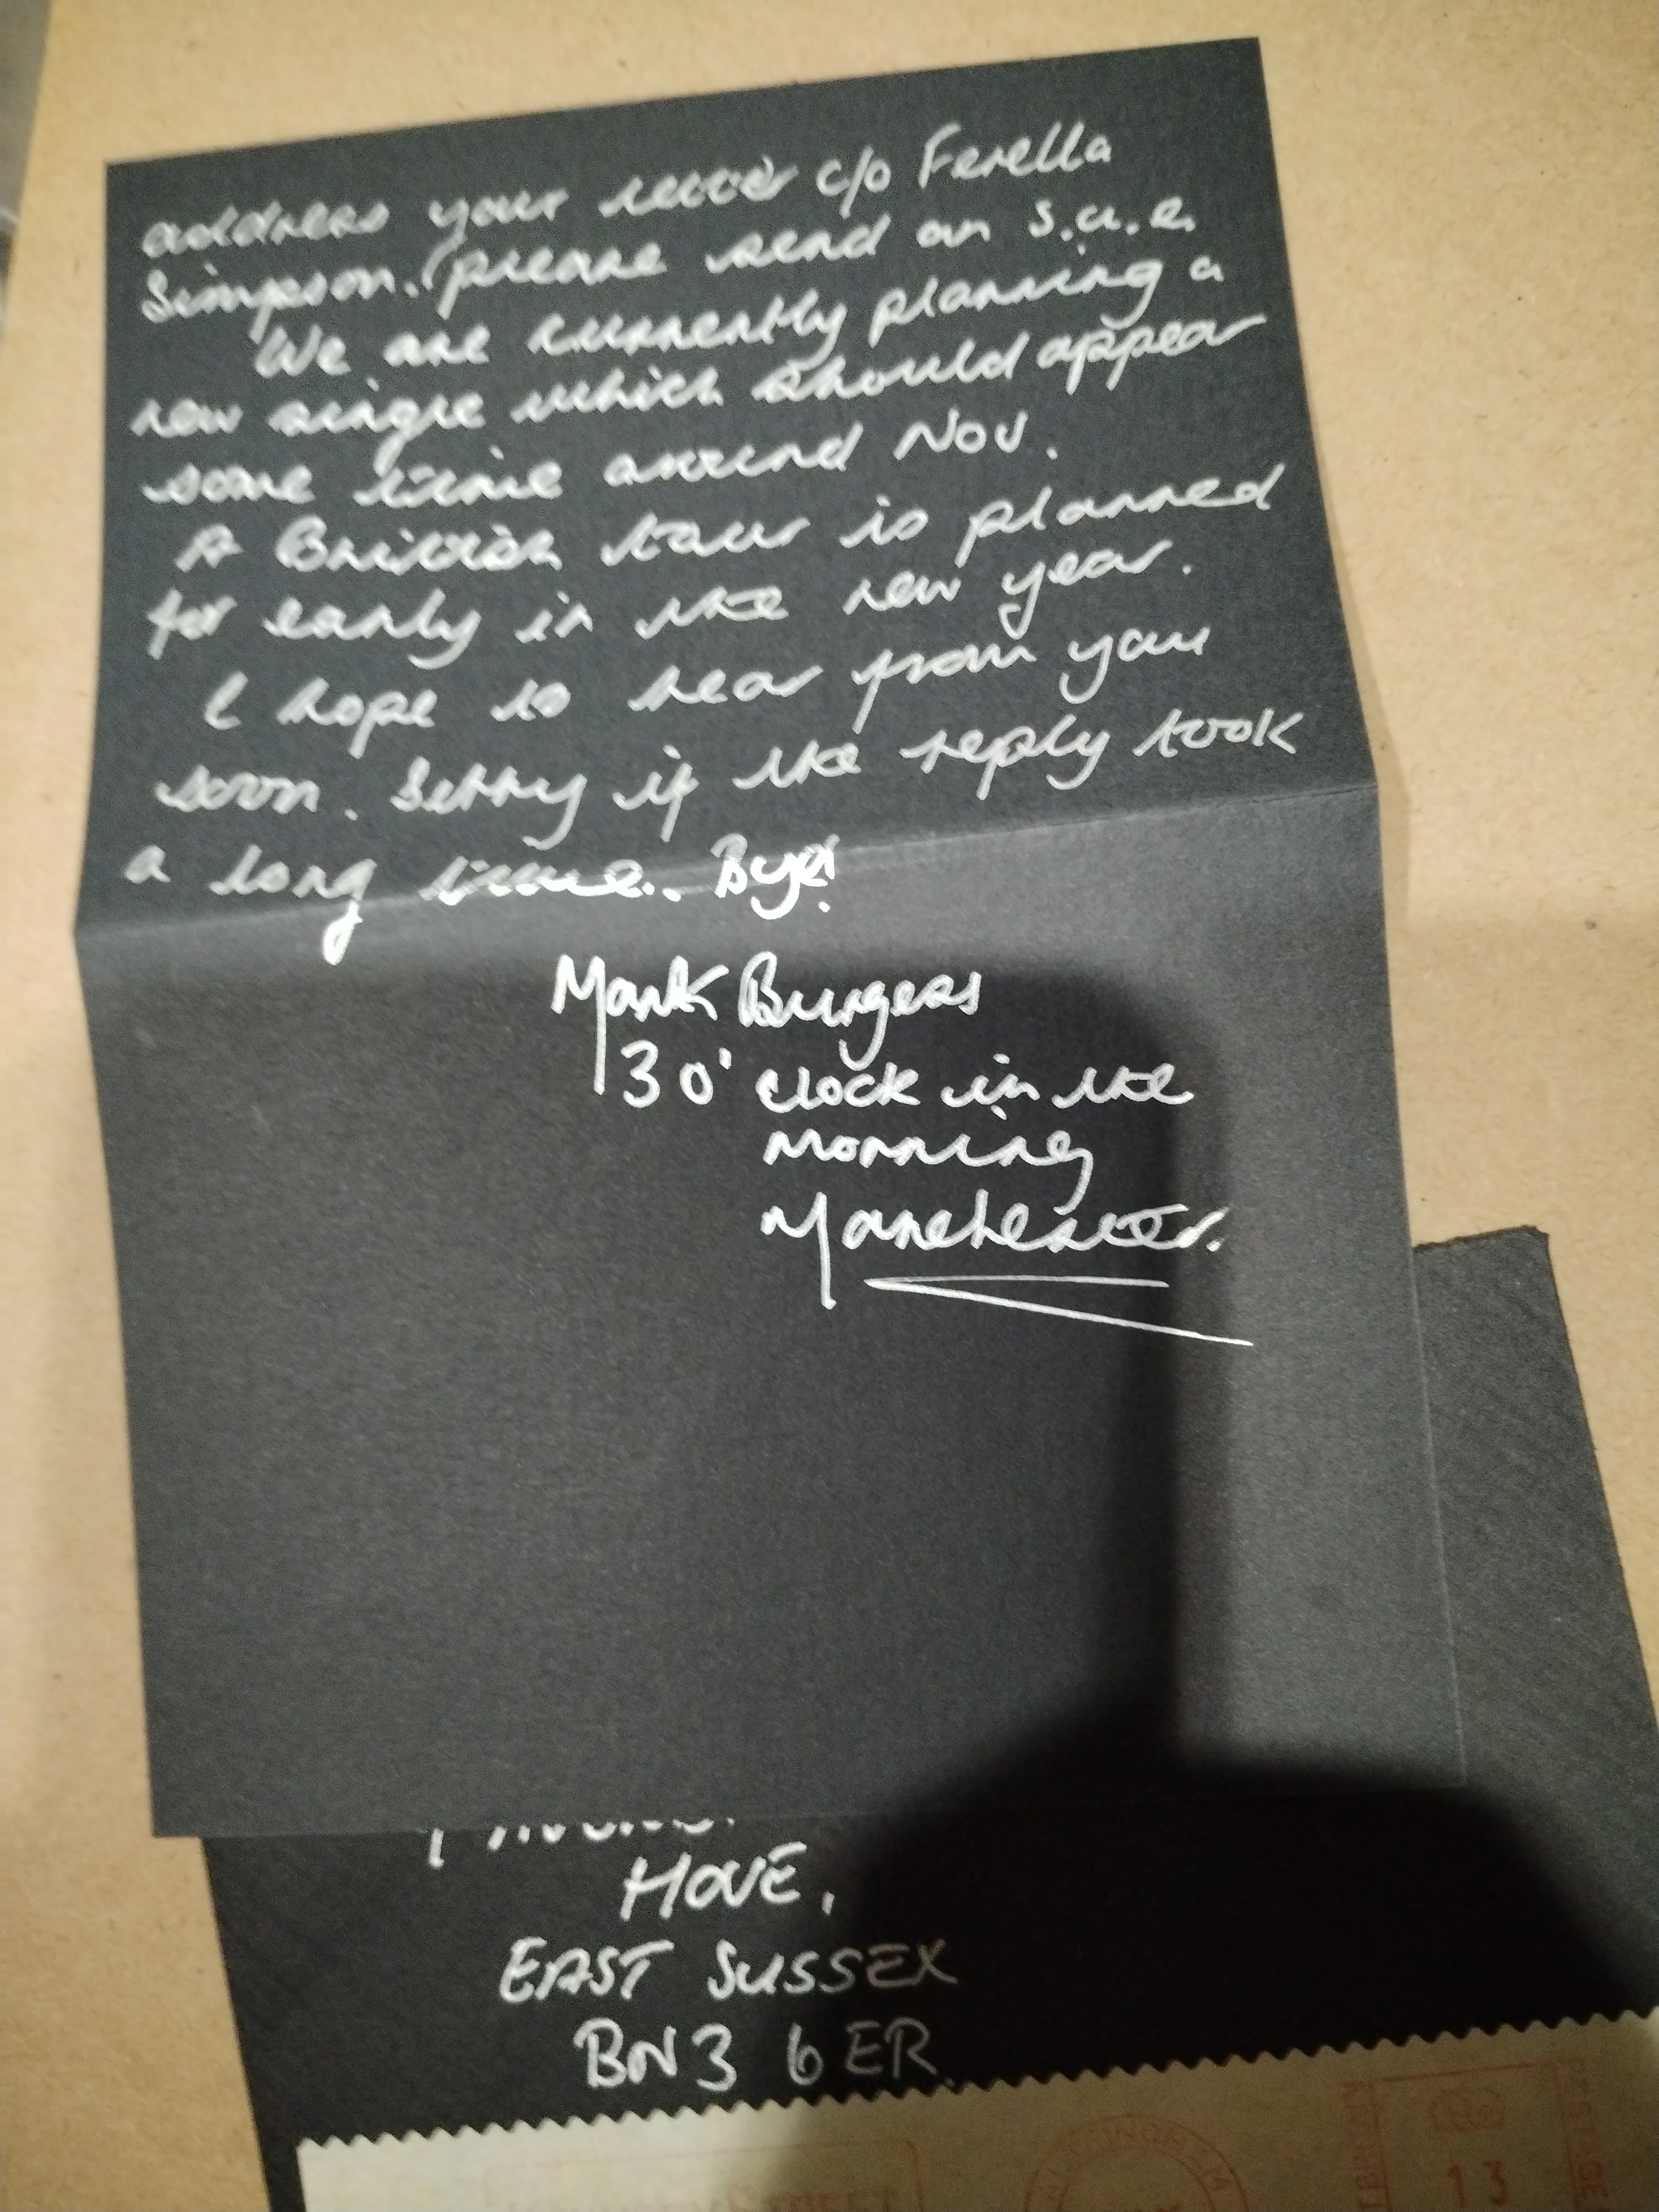 address your letter c/o Ferella
Simpson. (please send an s.a.e.
We are currently planning a
new single which should appear
some time around Nov.
A British tour is planned
for early in the new year.
I hope to hear from you
soon. Sorry if the reply took
a long time. Bye!
Mark Burgess
3 o'clock in the
morning
Manchester.
HOVE,
EAST SUSSEX
BN3 6ER.
13